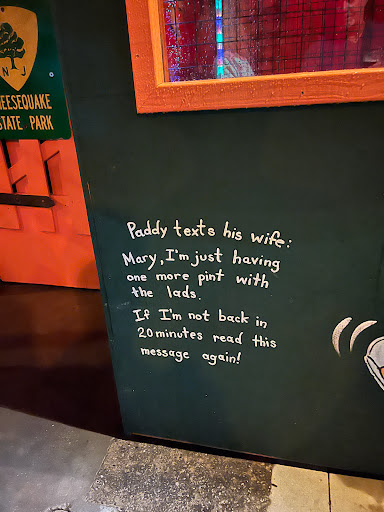 N J
HEESEQUAKE
STATE PARK
Paddy texts his wife:
Mary, I'm just having
one more pint with
the lads.
If I'm not back in
20 minutes read this
message again!